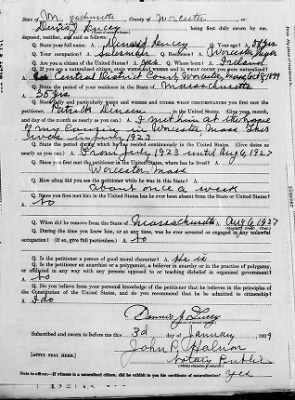 State of Massachusetts County of Worcester
Dennis J. Lucey being first duly sworn by me,
deposed, testified, and said as follows:
Q. State your full name? A. Dennis J. Lucey Q. Your age? A. 58 yrs
Q. Your occupation? A. Salesman Q. Residence? A. Worcester, Mass
Q. Are you a citizen of the United States? A. yes Q. Where born? A. Ireland
A. Central District Court, Worcester, Mass Oct 18, 1899
Q. State the period of your residence in the State of Massachusetts
A. 35 yrs
Q. State fully and particularly when and where and under what circumstances you first met the
petitioner, in the United States. (Give year, month,
and day of the month as nearly as you can.) A. I met him at the home
of my cousin in Worcester Mass. This
in July 1923
Q. State the period during which he has resided continuously in the United States. (Give dates
as nearly as you can.) A. From July 1923 until Aug 6, 1927
Q. Since you first met the petitioner in the United States, where has he lived? A.
Worcester, Mass
Q. How often did you see the petitioner while he was in this State? A.
about once a week
Q. Since you first met him in the United States has he ever been absent from the State or Nation?
A. No
Q. When did he remove from the State of Massachusetts, Aug 6, 1927
Q. During the time you knew him, or at any time, was he ever arrested or engaged in any unlawful
occupation? (If so, give full particulars.) A. No
Q. Is the petitioner a person of good moral character? A. He is
Q. Is the petitioner an anarchist or polygamist, a believer in anarchy or in the practice of polygamy,
or affiliated in any way with any persons opposed to or teaching disbelief in organized government?
A. No
Q. Do you believe from your personal knowledge of the petitioner that he believes in the principles
of the Constitution of the United States, and do you recommend that he be admitted to citizenship?
A. I do
Dennis J. Lucey
Subscribed and sworn to before me this 3d day of January, 1929
John P. Halnon
[AFFIX SEAL HERE.] Notary Public
Yes